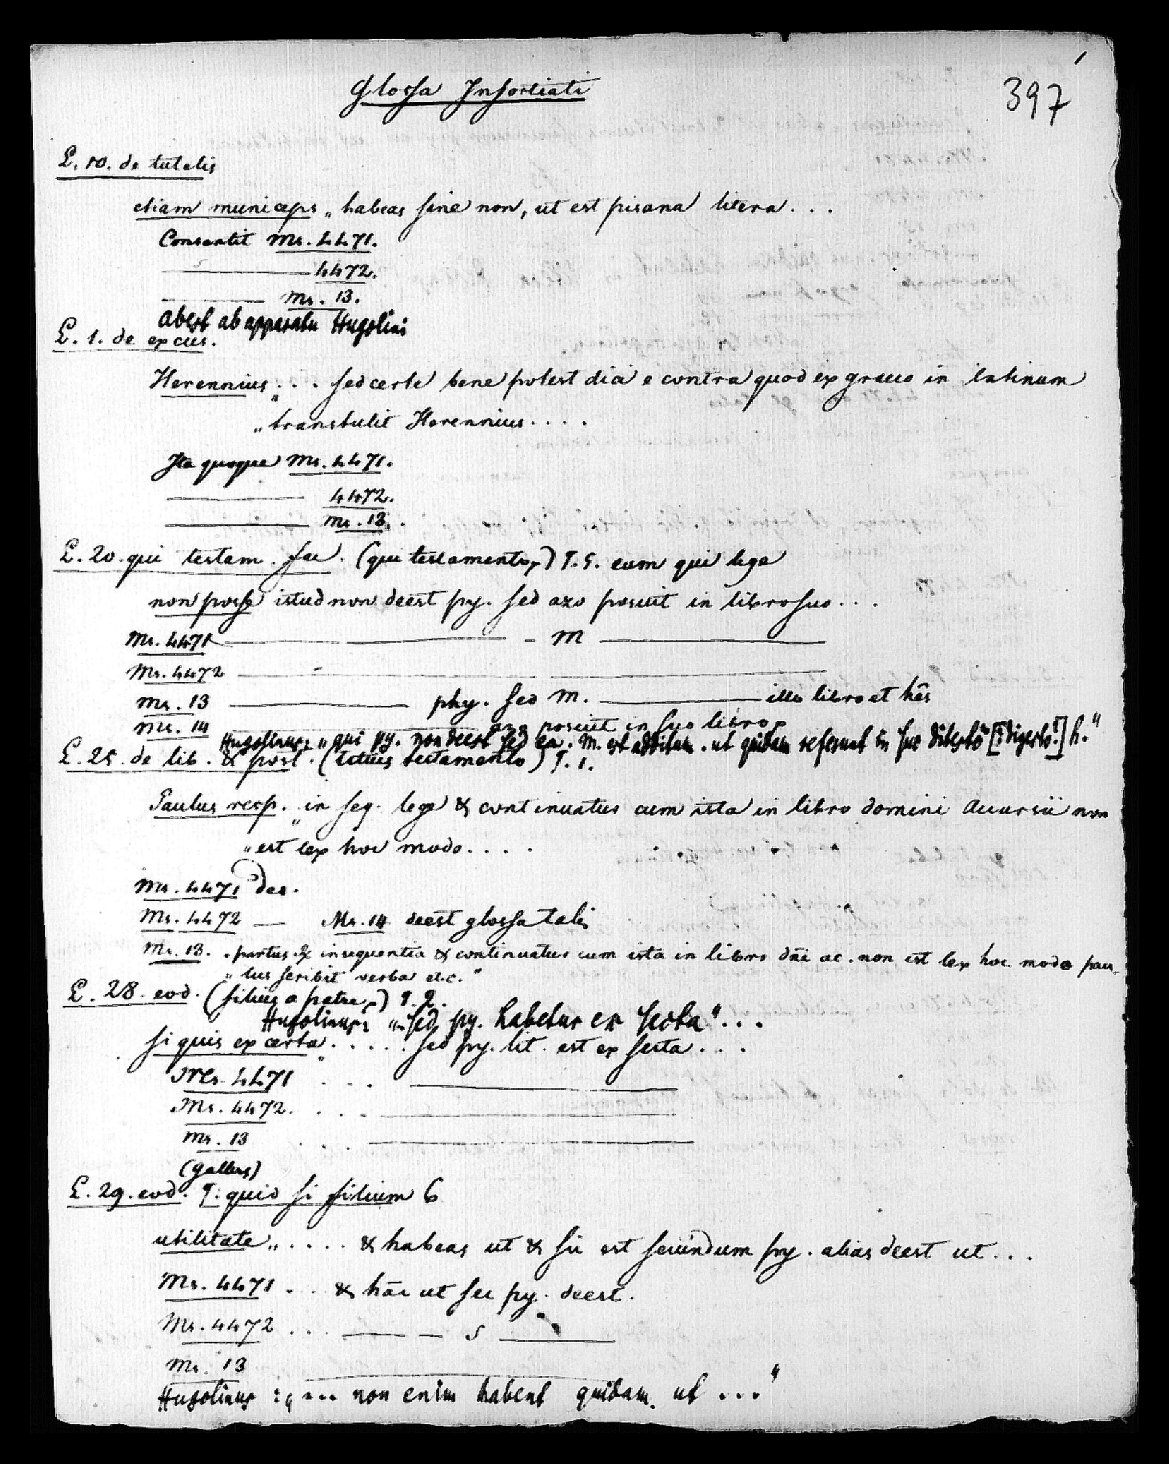 Glossa Infortiati
397
L. 10. de tutelis
etiam municeps „ habeas sine non, ut est pisana litera . . .
Consentit Ms. 4471.
4472.
Ms. 13.
abest ab apparatu Hugolini
L. 1. de excus.
Herennius „ . . . sed certe bene potest dici e contra quod ex graeco in latinum
„ transtulit Herennius . . . .
Ita quoque Ms. 4471.
4472.
Ms. 13.
L. 20. qui testam. fac. (qui testamento) § 5. eum qui lege
non posse istud non deest py. sed azo posuit in libro suo . . .
Ms. 4471 — — m —
Ms. 4472 —
Ms. 13 — phy. sed m. — illo libro et
Ms. 14 — azo posuit in suo libro
Hugolinus: „ qui py. non deest sed m. est additum . ut quidam referunt in suo [: digesto?] h."
L. 25. de lib. & post. ( testamento) § 1.
Paulus resp. „ in seq. lege & continuatur cum ista in libro domini Accursii non
„ est lex hoc modo . . . .
Ms. 4471 des.
Ms. 4472 — Ms. 14 deest glossa talis
Ms. 13. „ partus & in sequentia & continuatur cum ista in libro dni ac. non est lex hoc modo pau-
„ lus scribit verba etc."
L. 28. eod. (filius a patre) § 2.
Hugolinus: „ sed py. habetur ex secta" . . .
si quis ex certa . . . . . sed py. lit. est ex secta . . .
Ms. 4471 . . . —
Ms. 4472. . . . —
Ms. 13 . . —
(gallus)
L. 29. eod. §. quid si filium 6
utilitate „ . . . . & habeas ut & si est secundum py. alias deest ut . . .
Ms. 4471 . . . & hãc ut sec py. deest.
Ms. 4472 . . . — — s —
Ms. 13 —
Hugolinus : „ ... non enim habent quidam ut ..."